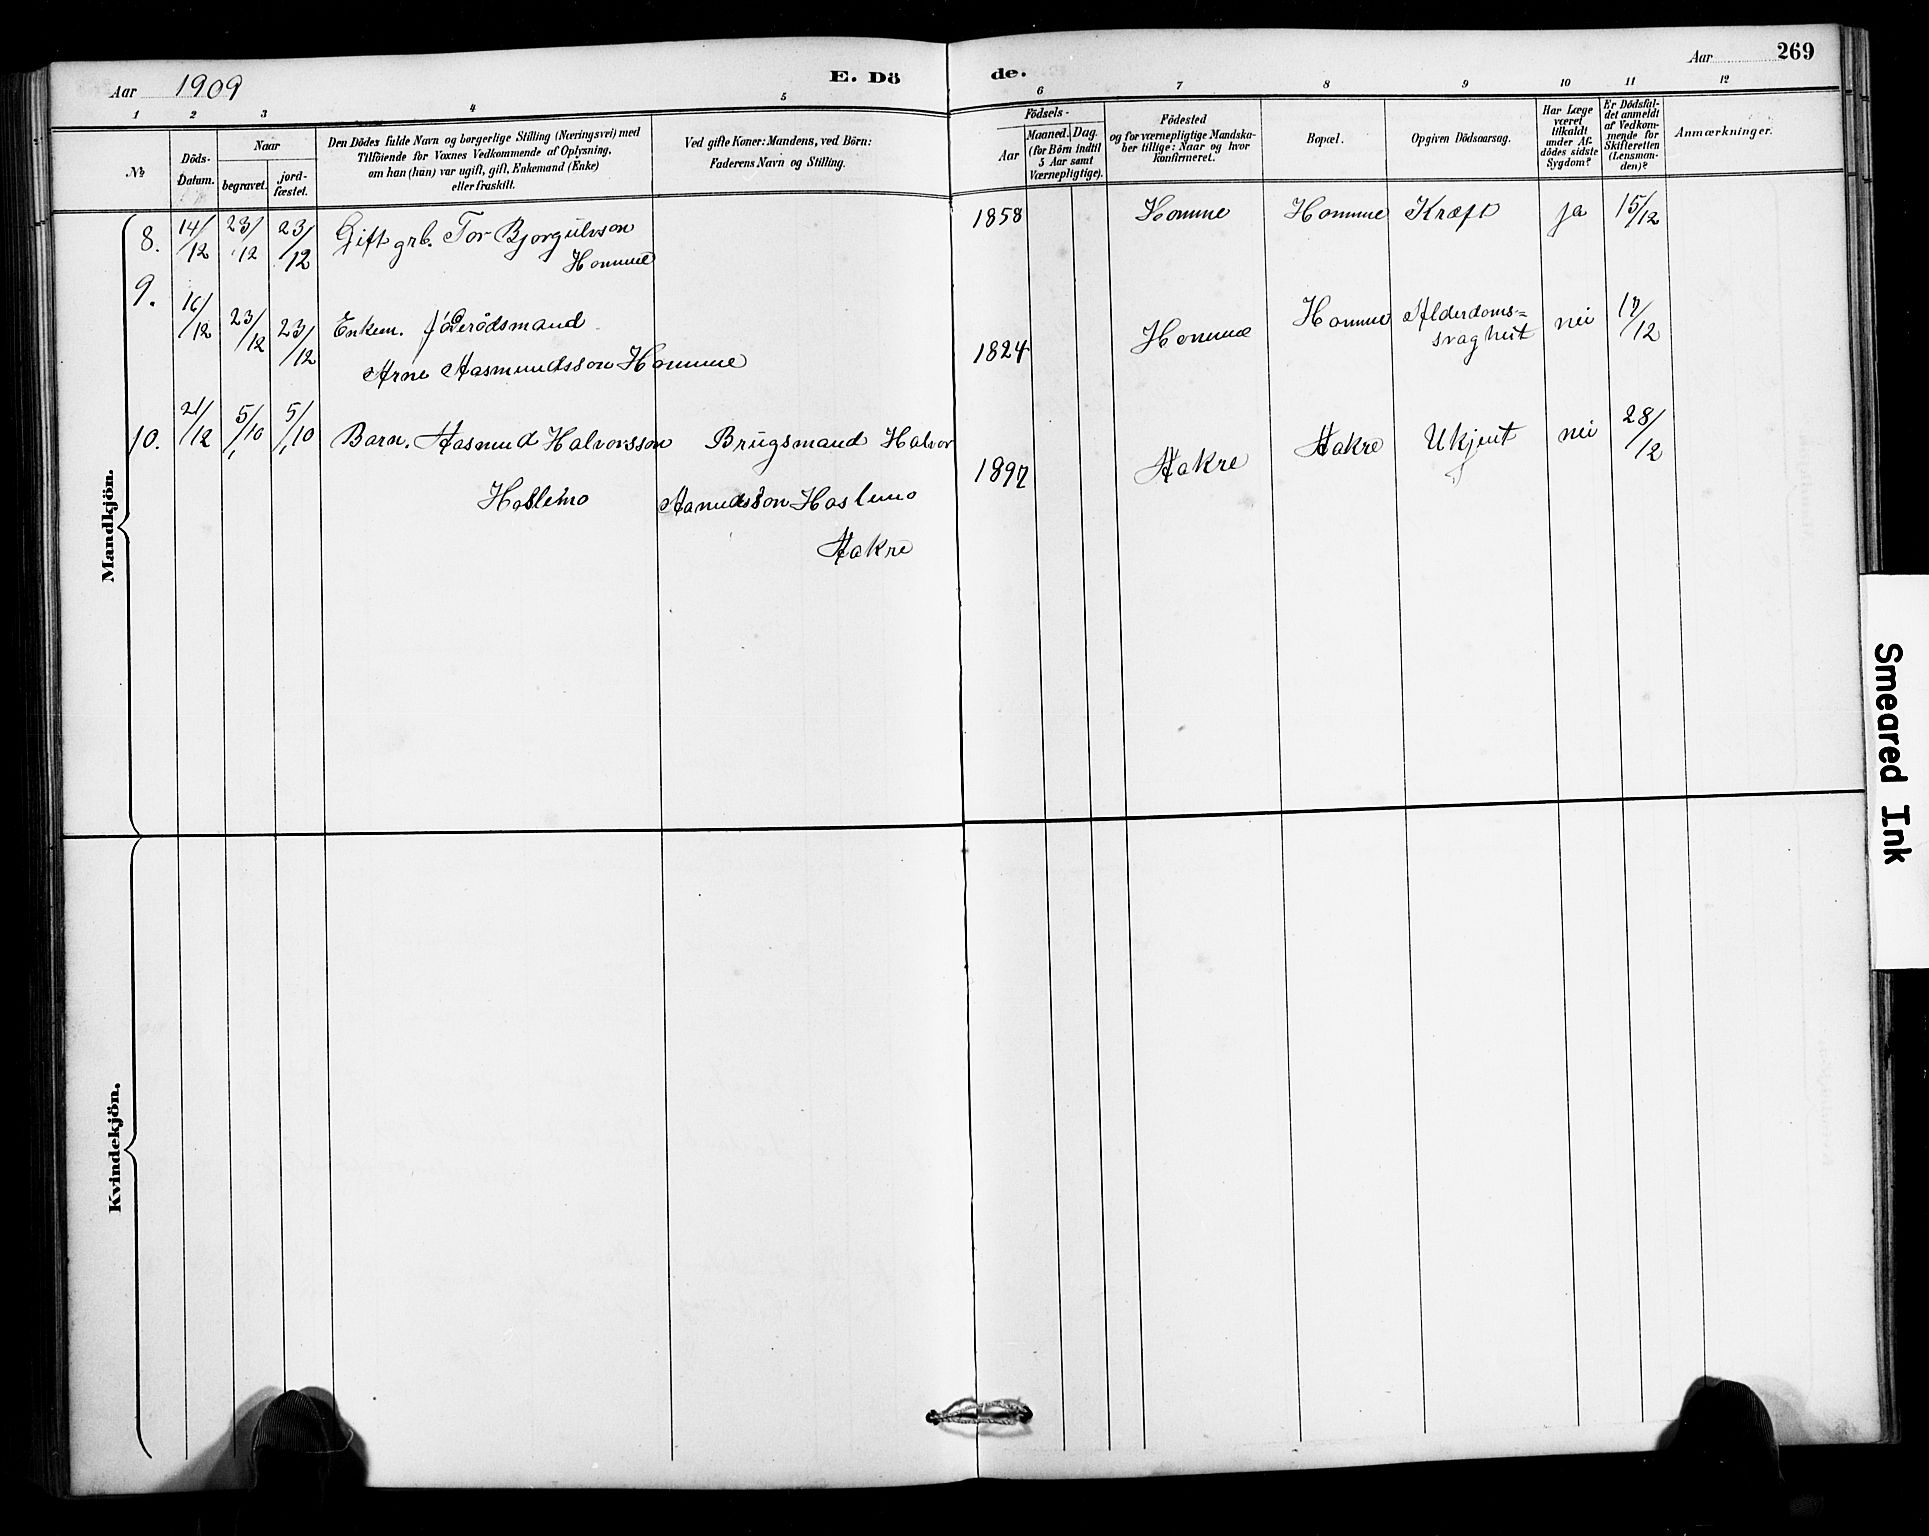 Aar 1909
E. Dö
de.
Aar
269
1 2 3 4 5 6 7 8 9 10 11 12
№
Döds-
Datum.
Naar
begravet.
jord-
fæstet.
Den Dödes fulde Navn og borgerlige Stilling (Næringsvei) med
Tilföiende for Voxnes Vedkommende af Oplysning,
om han (hun) var ugift, gift, Enkemand (Enke)
eller fraskilt.
Ved gifte Koner: Mandens, ved Börn:
Faderens Navn og Stilling.
Födsels-
Aar
Maaned. Dag.
(for Börn indtil
5 Aar samt
Værnepligtige).
Födested
og for værnepligtige Mandska-
ber tillige: Naar og hvor
konfirmeret.
Bopæl.
Opgiven Dödsaarsag.
Har Læge
været
tilkaldt
under Af-
dödes sidste
Sygdom?
Er Dödsfal-
det anmeldt
af Vedkom-
mende for
Skifteretten
(Lensman-
den)?
Anmærkninger.
Mandkjön.
8. 14/12 23/12 23/12 Gift grb. Tor Bjorgulvson 1858 Homme Homme Kræft ja 15/12
Homme
9. 16/12 23/12 23/12 Enkem. föderådsmand 1824 Homme Homme Alderdoms= nei 17/12
Arne Aasmundsson Homme svaghet
10. 21/12 5/10 5/10 Barn. Aasmund Halvorsson Brugsmand Halvor 1897 Aakre Aakre Ukjent nei 28/12
Haslemo Haslemo
Aakre
Kvindekjön.
Smeared Ink